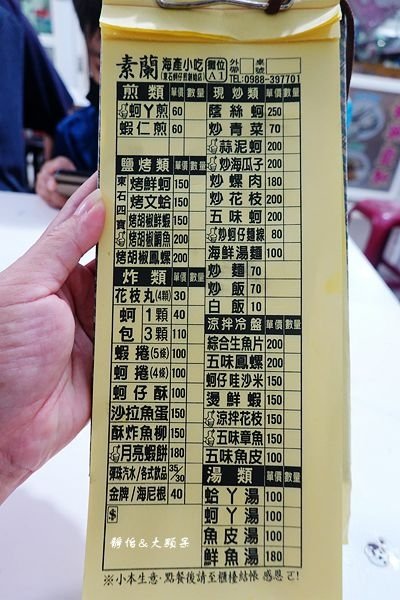 素蘭 海產小吃 攤位 外帶 桌號
(東石蚵仔煎創始店) A1 TEL:0988-397701
煎類 單價 數量
蚵丫煎 60
蝦仁煎 60
鹽烤類 單價 數量
東石四寶
烤鮮蚵 150
烤文蛤 150
烤胡椒鮮蝦 150
烤胡椒鯛魚 200
烤胡椒鳳螺 200
炸類 單價 數量
花枝丸(4顆) 30
蚵1顆 40
包3顆 110
蝦捲(5條) 100
蚵捲(4條) 100
蚵仔酥 100
沙拉魚蛋 150
酥炸魚柳 150
月亮蝦餅 180
彈珠汽水/各式飲品 35/30
金牌/海尼根 40
$
現炒類 單價 數量
蔭絲蚵 250
炒青菜 70
蒜泥蚵 200
炒海瓜子 200
炒螺肉 180
炒花枝 200
五味蚵 200
炒蚵仔麵線 80
海鮮湯麵 100
炒麵 70
炒飯 70
白飯 10
涼拌冷盤 單價 數量
綜合生魚片 200
五味鳳螺 200
蚵仔哇沙米 150
燙鮮蝦 150
涼拌花枝 150
五味章魚 150
五味魚皮 100
湯類 單價 數量
蛤丫湯 100
蚵丫湯 100
魚皮湯 100
鮮魚湯 180
靜怡&大顆呆
※小本生意,點餐後請至櫃檯結帳 感恩ㄛ!